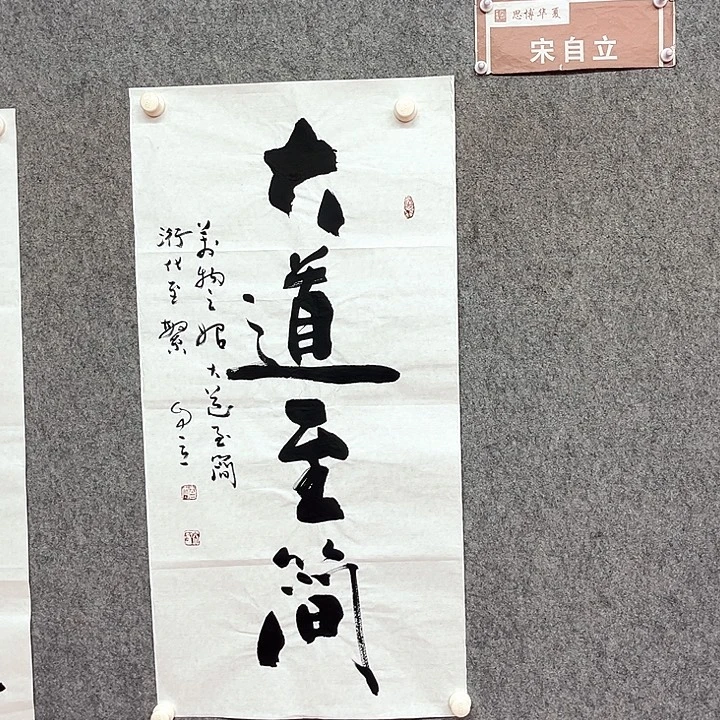 思博华夏
宋自立
大道至简
万物之始大道至简
衍化至繁
自立